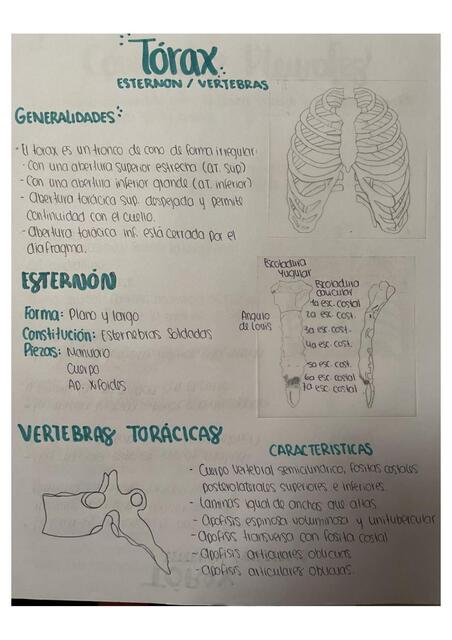 Tórax
ESTERNON / VERTEBRAS
GENERALIDADES:
- El torax es un tronco de cono de forma irregular:
- Con una abertura superior estrecha (aT. sup)
- Con una abertura inferior grande (aT. inferior)
- Abertura torácica sup. despejada y permite
continuidad con el cuello.
- Abertura torácica inf. está cerrada por el
diafragma.
ESTERNÓN
Forma: Plano y largo
Constitución: Esternebras Soldadas
Piezas: Manubrio
Cuerpo
Ap. Xifoides
Escotadura
Yugular
Escotadura
clavicular
Angulo
de Louis
1a esc. costal
2a esc. cost.
3a esc. cost.
4a esc. cost.
5a esc. cost.
6a esc. costal
7a esc. costal
VERTEBRAS TORÁCICAS
CARACTERISTICAS
- Cuerpo vertebral semicilindrico, fositas costales
posterolaterales superiores e inferiores.
- Laminas igual de anchas que altas
- Apofisis espinosa voluminosa y unitubercular
- Apofisis transversa con fosita costal
- Apofisis articulares oblicuas
- Apofisis articulares oblicuas.